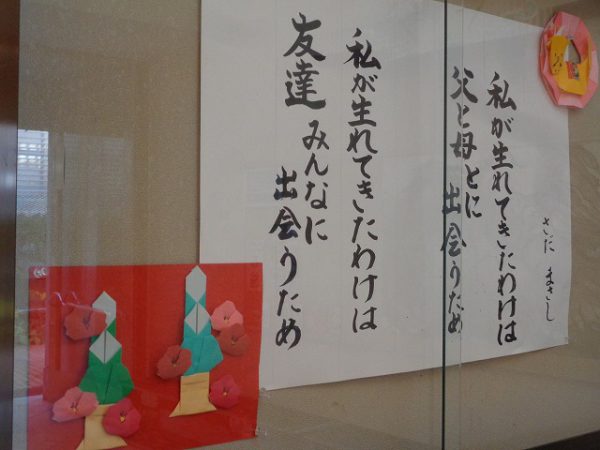 さだ まさし
私が生れてきたわけは
父と母とに
出会うため
私が生れてきたわけは
友達みんなに
出会うため